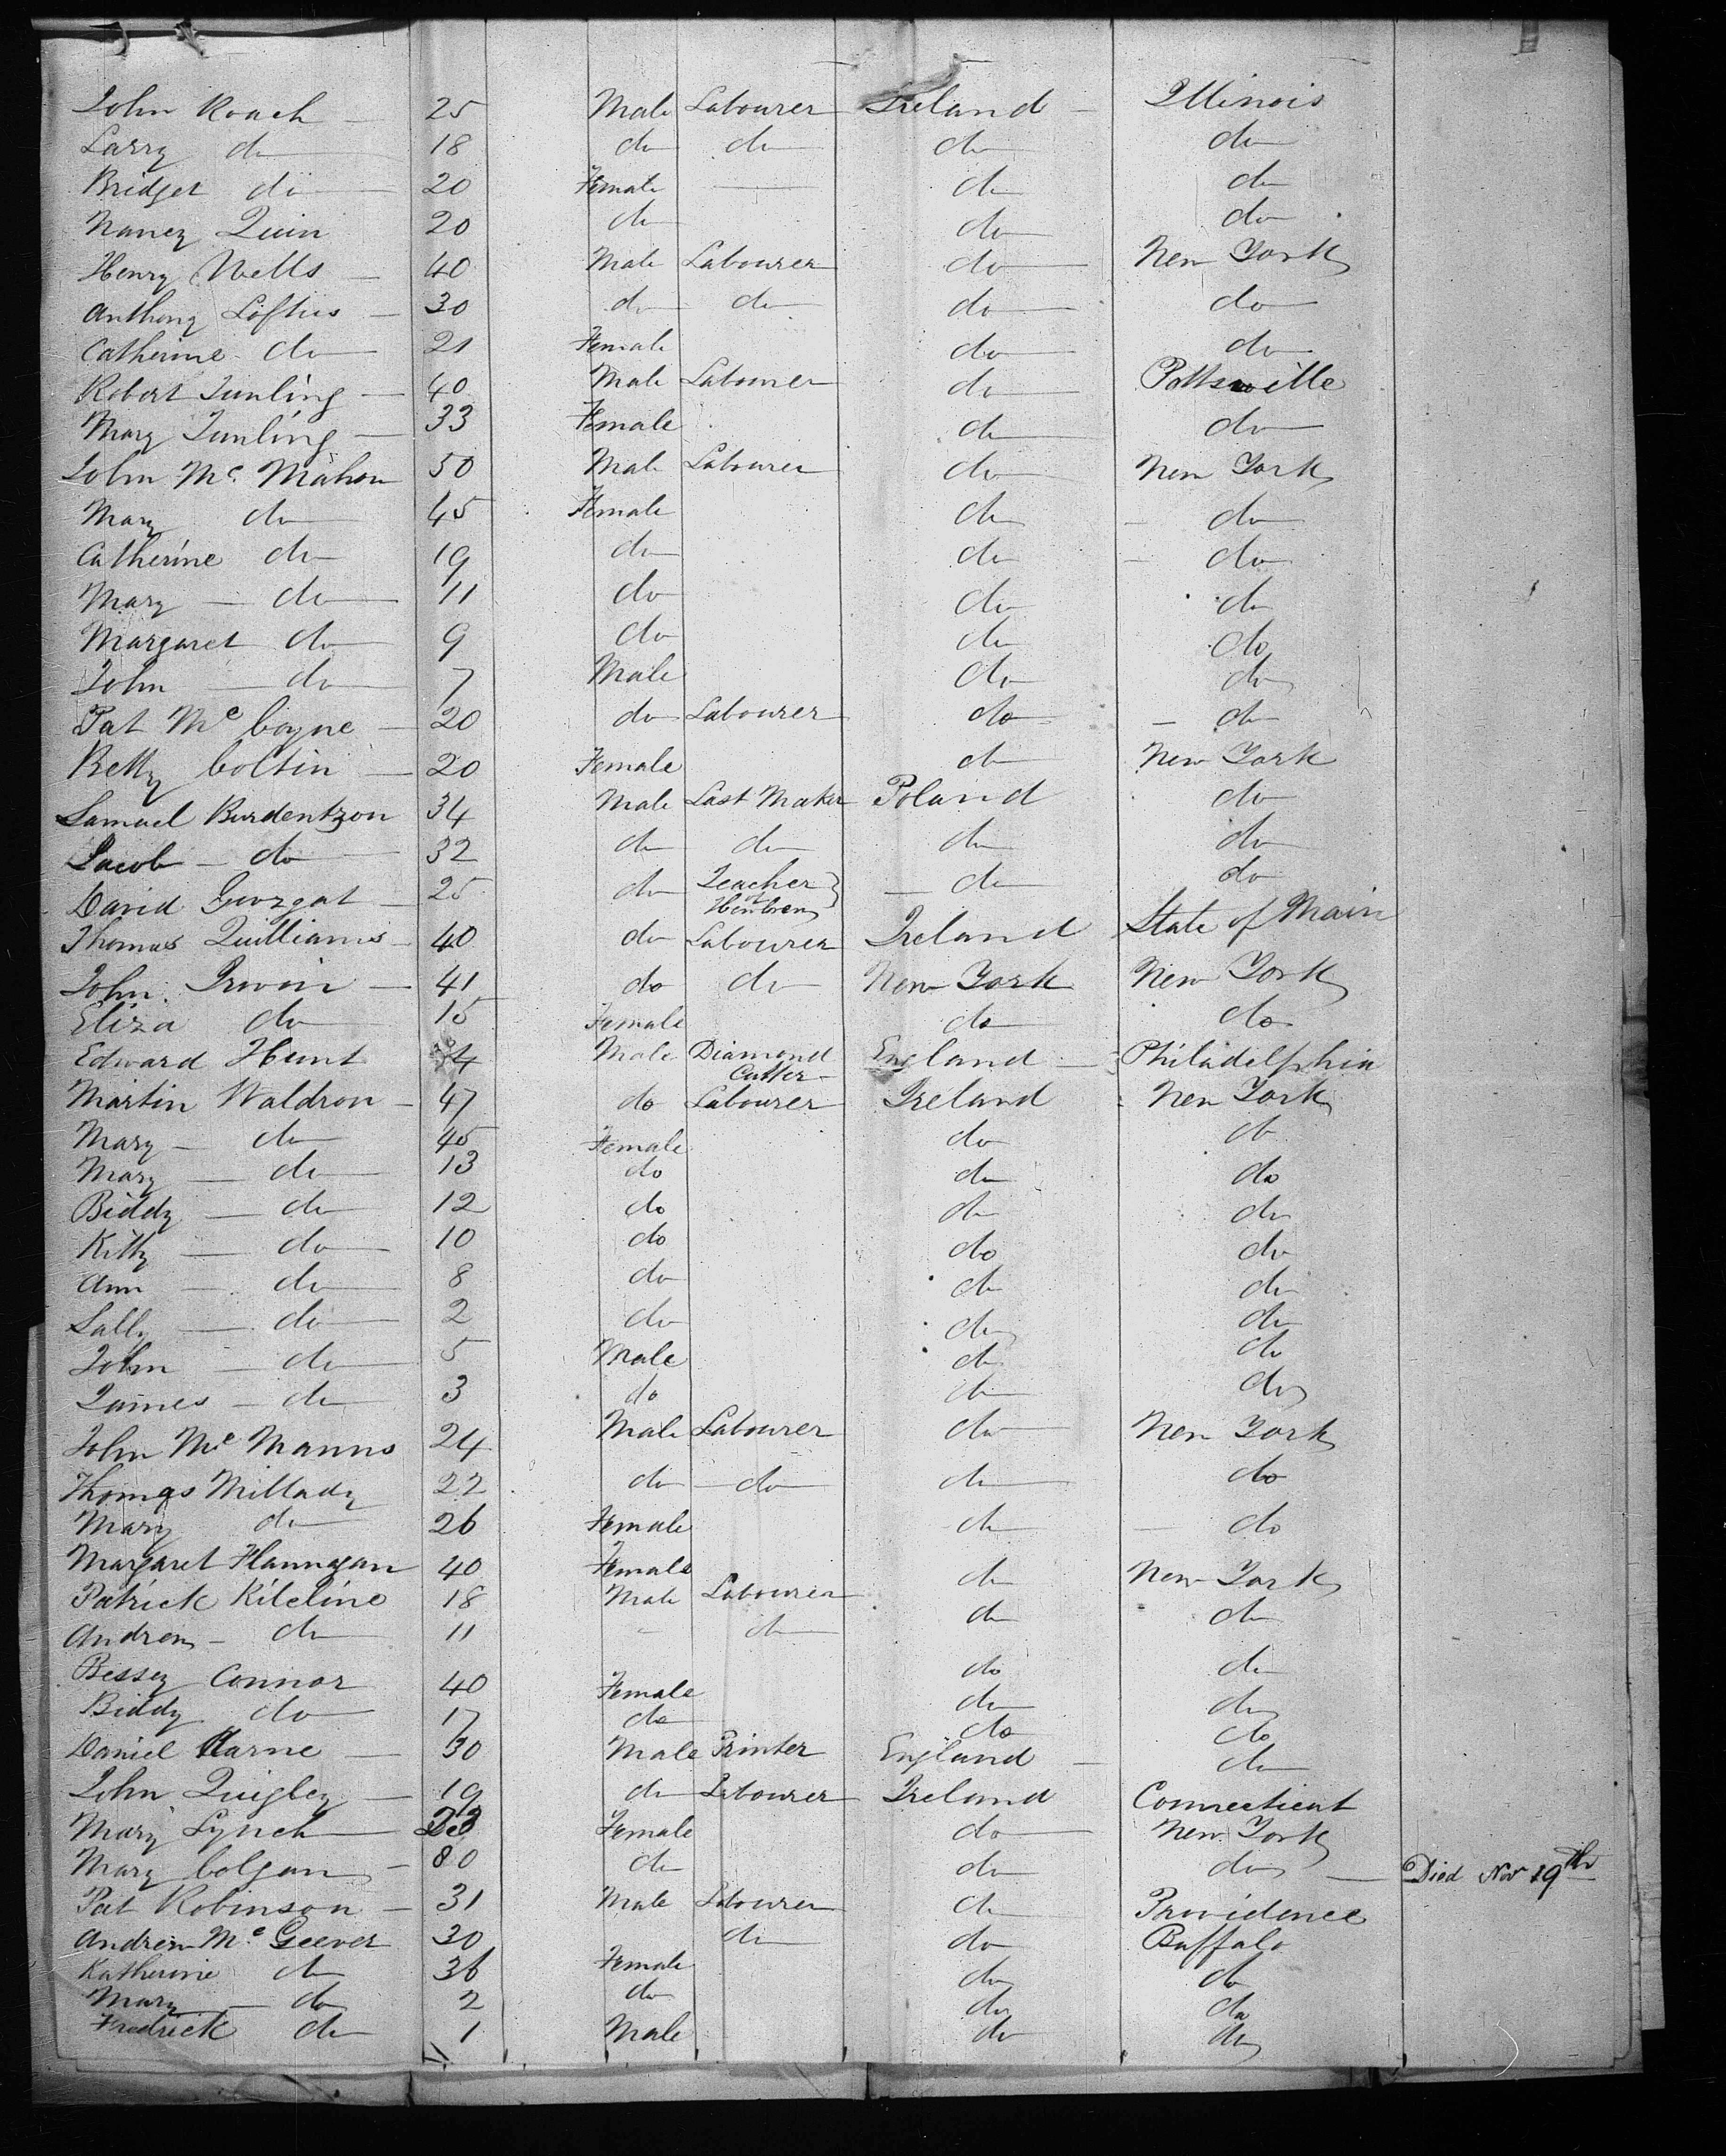 John Roach 25 Male Labourer Ireland Illinois
Larry do 18 do do do do
Bridget do 20 Female do do
Nancy Quin 20 do do do
Henry Wells 40 Male Labourer do New York
Anthony Loftus 30 do do do do
Catherine do 21 Female do do
Robert Tunling 40 Male Labourer do Pottsville
Mary Tunling 33 Female do do
John Mc Mahon 50 Male Labourer do New York
Mary do 45 Female do do
Catherine do 19 do do do
Mary do 11 do do do
Margaret do 9 do do do
John do 7 Male do do
Pat Mc Coyne 20 do Labourer do do
Betty Coltin 20 Female do New York
Samuel Burdentzon 34 Male Last Maker Poland do
Jacob do 32 do do do do
David 25 do Teacher of Hewbrew do do
Thomas Quilliams 40 do Labourer Ireland State of Main
John Irwin 41 do do New York New York
Eliza do 15 Female do do
Edward Hunt 34 Male Diamond Cutter England Philadelphia
Martin Waldron 47 do Labourer Ireland New York
Mary do 45 Female do do
Mary do 13 do do do
Biddy do 12 do do do
Kitty do 10 do do do
Ann do 8 do do do
Sally do 2 do do do
John do 5 Male do do
James do 3 do do do
John Mc Manns 24 Male Labourer do New York
Thomas Millady 22 do do do do
Mary do 26 Female do do
Margaret Flannagan 40 Female do New York
Patrick Kilcline 18 Male Labourer do do
Andrew do 11 do do do
Bessey Connor 40 Female do do
Biddy do 17 do do do
Daniel Harne 30 Male Printer England do
John Quigley 19 do Labourer Ireland Connecticut
Mary Lynch 23 Female do New York
Mary Colgan 80 do do do Died Nov 19th
Pat Robinson 31 Male Labourer do Providence
Andrew Mc Geever 30 do do Buffalo
Katherine do 36 Female do do
Mary do 2 do do do
Fredrick do 1 Male do do